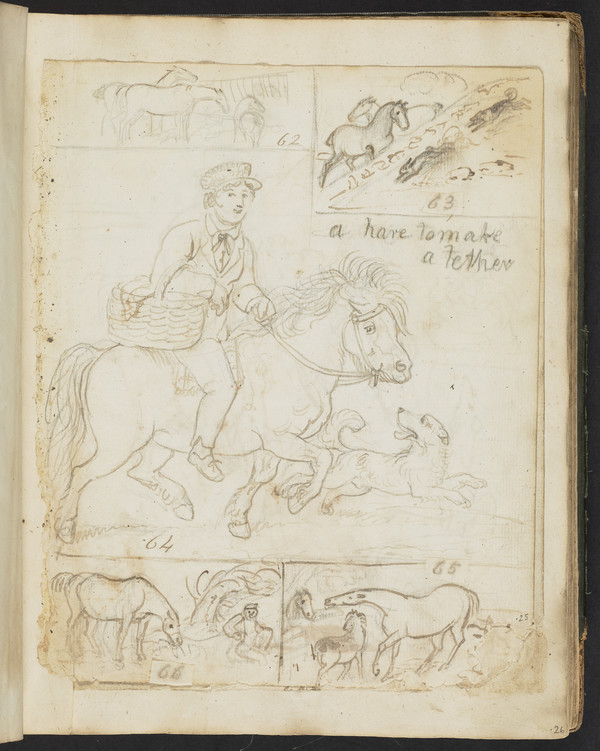 62
63
a hare to make
a tether
64
65
66
25
26